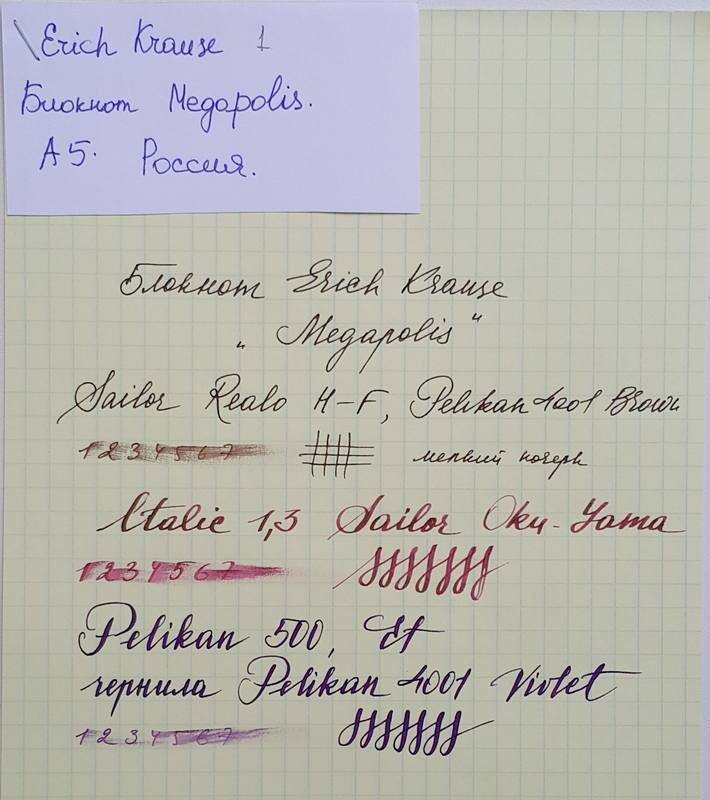 Erich Krause 1
Блокнот Megapolis.
А5. Россия.
Блокнот Erich Krause
„ Megapolis “
Sailor Realo H-F, Pelikan 4001 Brown
1 2 3 4 5 6 7 мелкий почерк
Italic 1,3 Sailor Oku-Yama
1 2 3 4 5 6 7
Pelikan 500, Ef
чернила Pelikan 4001 Violet
1 2 3 4 5 6 7